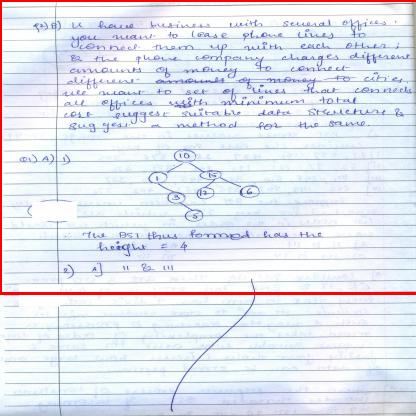 Q2) B) U have business with several offices.
you want to lease phone lines to
connect them up with each other;
& the phone company charges different
amounts of money to connect
different amounts of money to cities
we want to set of lines that connects
all offices with minimum total
cost suggest suitable data structure &
suggest a method for the same.
Q1) A) 1)
10
1 15
3 12 6
5
∴ The BST thus formed has the
height = 4
2) A] II & III